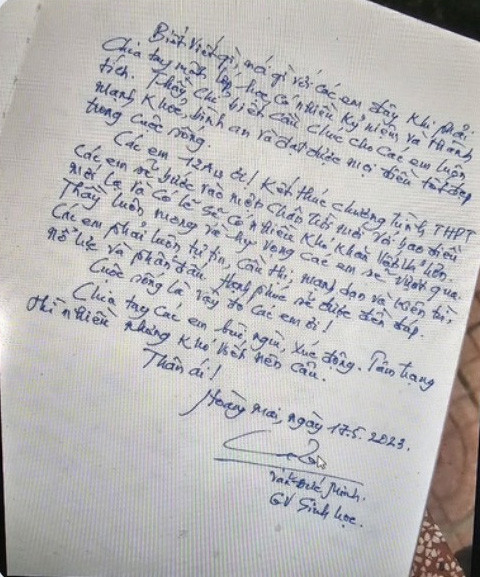 Biết viết gì, nói gì với các em đây khi phải
chia tay một lớp học có nhiều kỷ niệm và thành
tích. Thầy chỉ biết cầu chúc cho các em luôn
mạnh khoẻ, bình an và đạt được mọi điều tốt đẹp
trong cuộc sống.
Các em 12A ơi! Kết thúc chương trình THPT
các em sẽ bước vào một chân trời mới với bao điều
mới lạ và có lẽ sẽ có nhiều khó khăn vất vả hơn.
Thầy luôn mong và hy vọng các em sẽ vượt qua.
Các em phải luôn tự tin, cần thì mạnh dạn và kiên trì,
nỗ lực và phấn đấu hạnh phúc sẽ được đền đáp.
Cuộc sống là vậy đó các em ơi!
Chia tay các em bùi ngùi, xúc động. Tâm trạng
thì nhiều nhưng khó viết nên câu.
Thân ái!
Hoàng Mai, ngày 17.5.2023.
Đức Minh.
GV Sinh học.